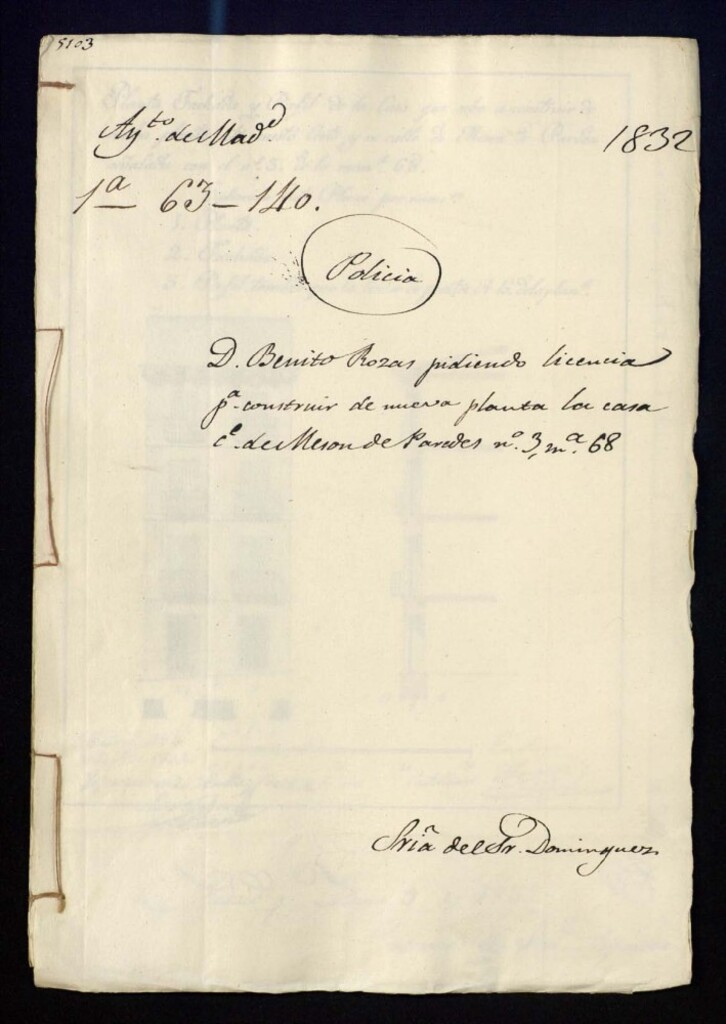 5103
Ay.to de Mad.d
1832
1a 63-140.
Policia
D. Benito Rozas pidiendo licencia
p.a construir de nueva planta la casa
c.e de Meson de Paredes n.o 3, m.a 68
Sria del Sr. Dominguez